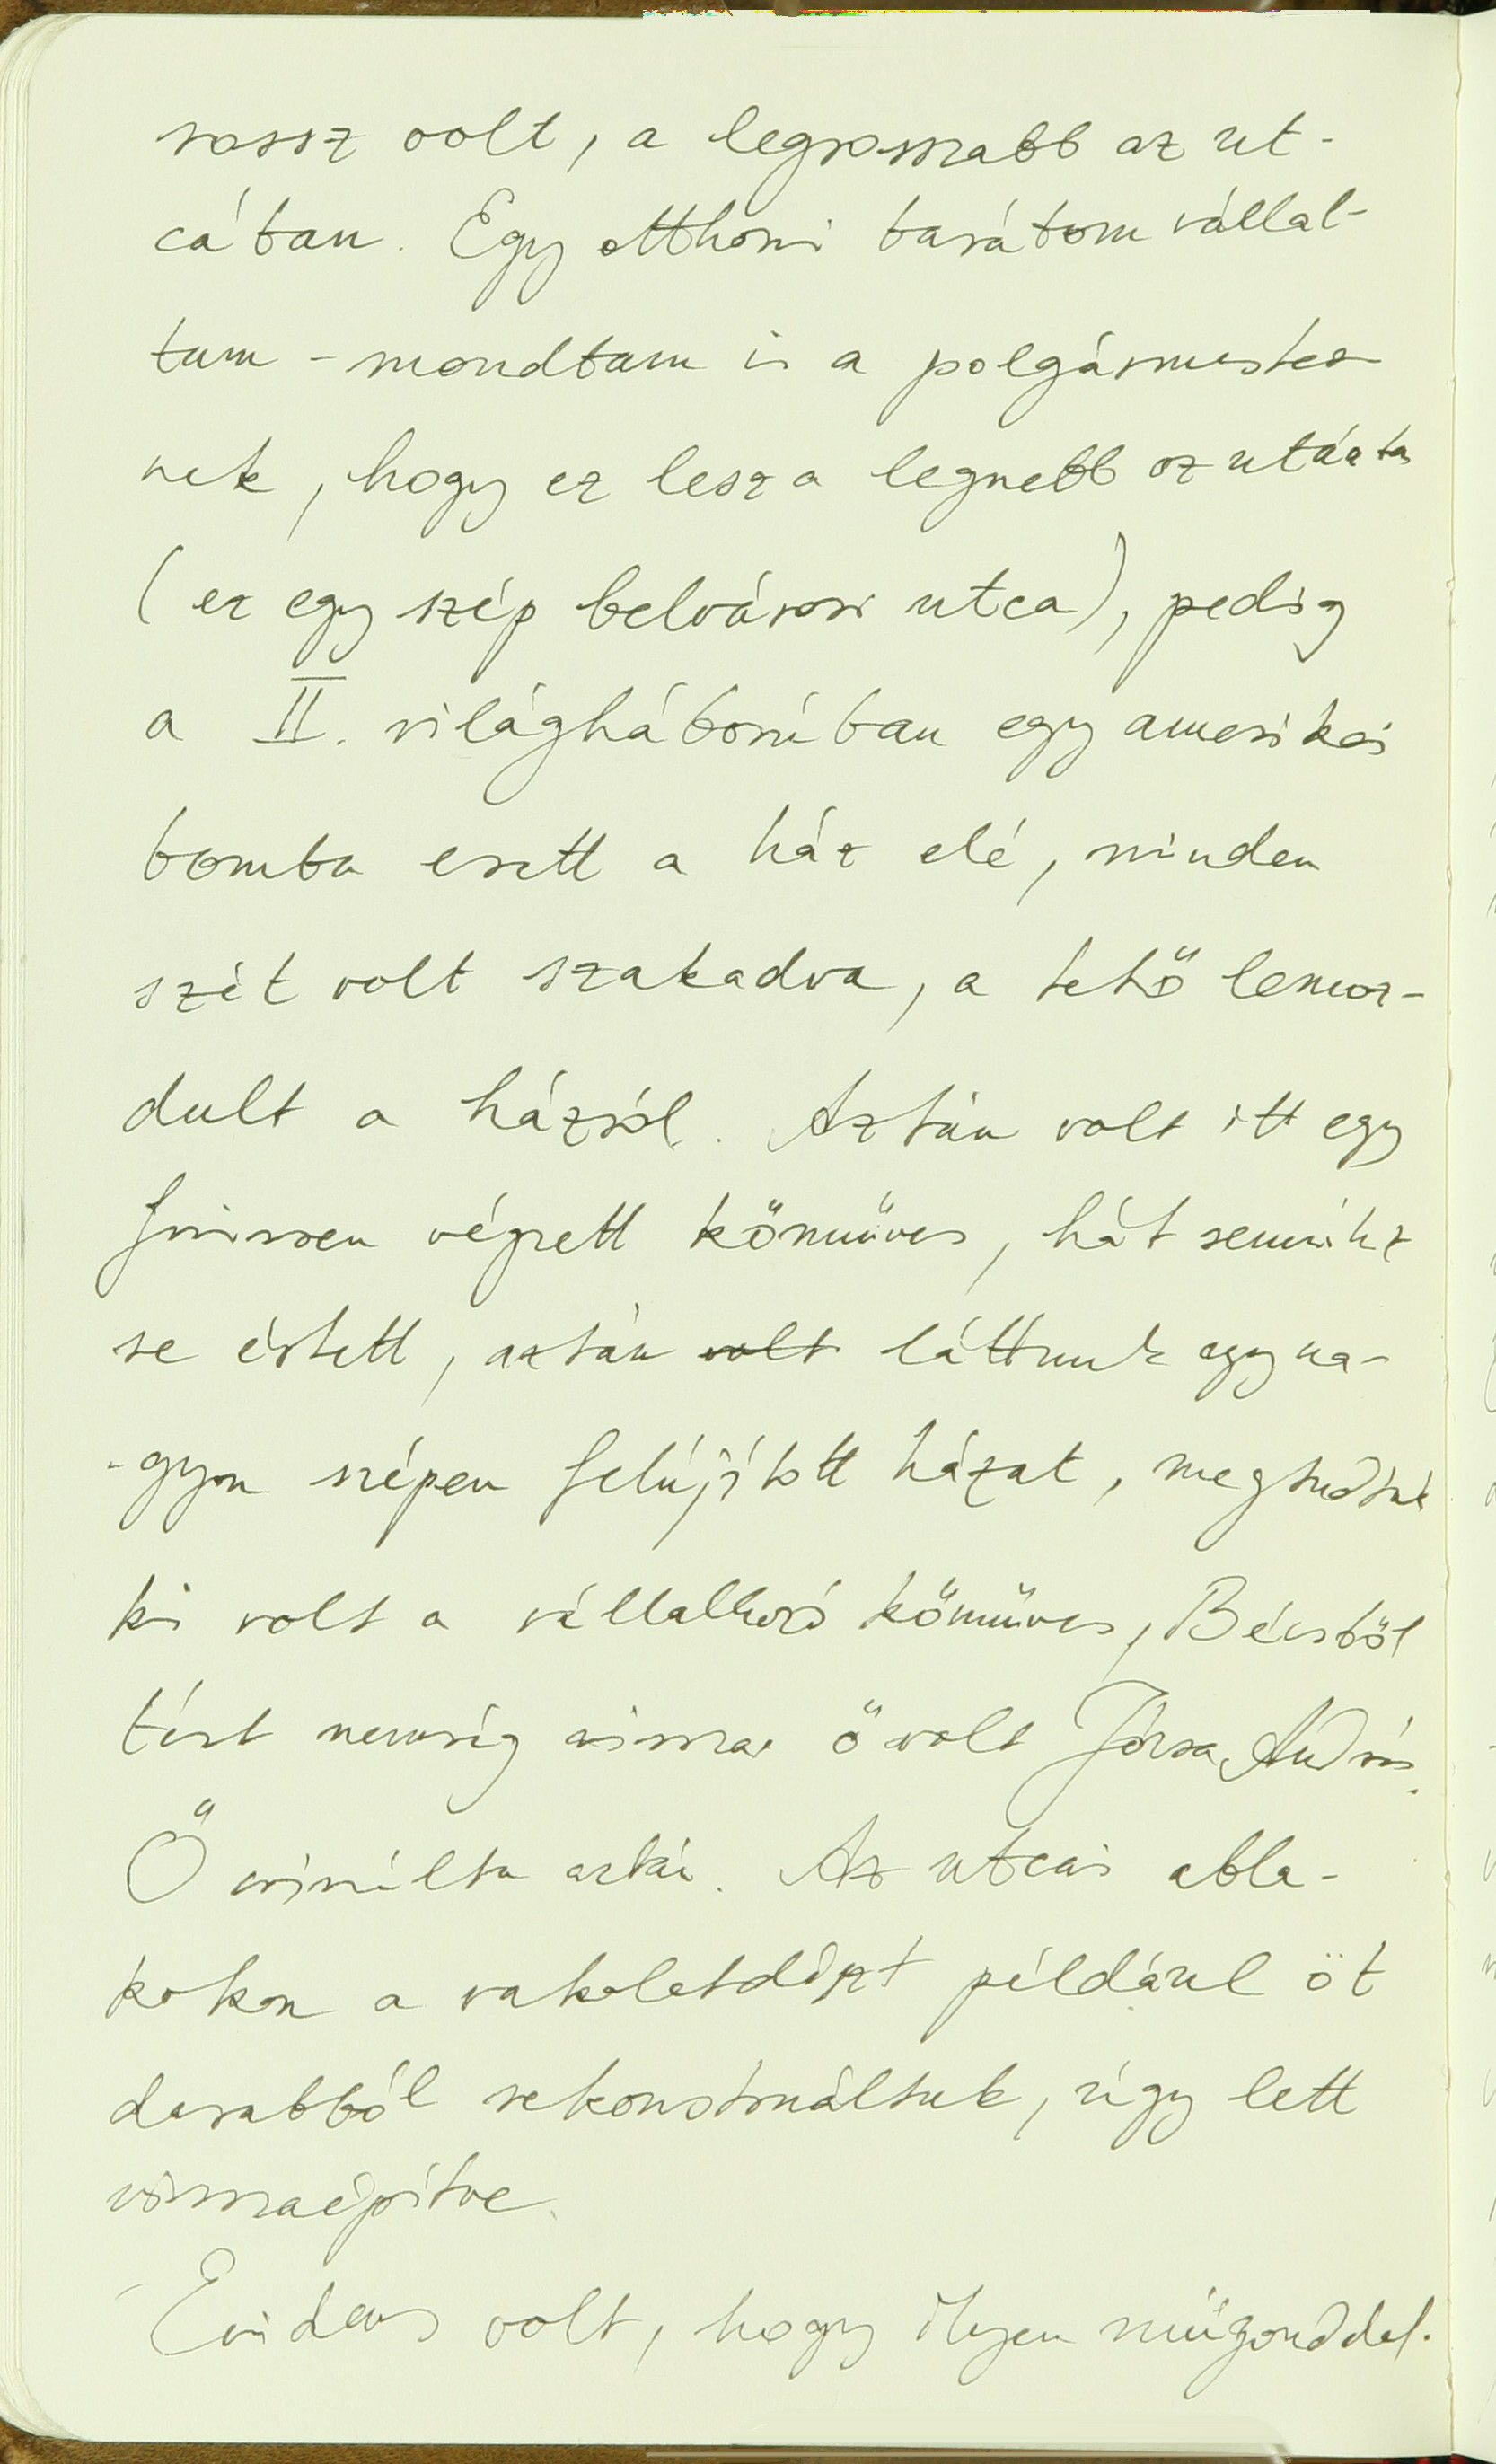 rossz volt, a legrosszabb az ut-
cában. Egy otthoni barátom vállal-
tam - mondtam is a polgármester
nek, hogy ez lesz a legszebb az utcába
(ez egy szép belvárosi utca), pedig
a II. világháborúban egy amerikai
bomba esett a ház elé, minden
szét volt szakadva, a tető lemoz-
dult a házról. Aztán volt itt egy
frissen végzett kőműves, hát semmihez
se értett, aztán volt láttunk egy na-
-gyon szépen felújított házat, megtudtuk
ki volt a vállalkozó kőműves, Bécsből
tért nemrég vissza ő volt Józsa András.
Ő csinálta aztán. Az utcai abla-
kokon a vakolatdíszt például öt
darabból rekonstruáltuk, úgy lett
visszaépítve.
Evidens volt, hogy ilyen műgonddal